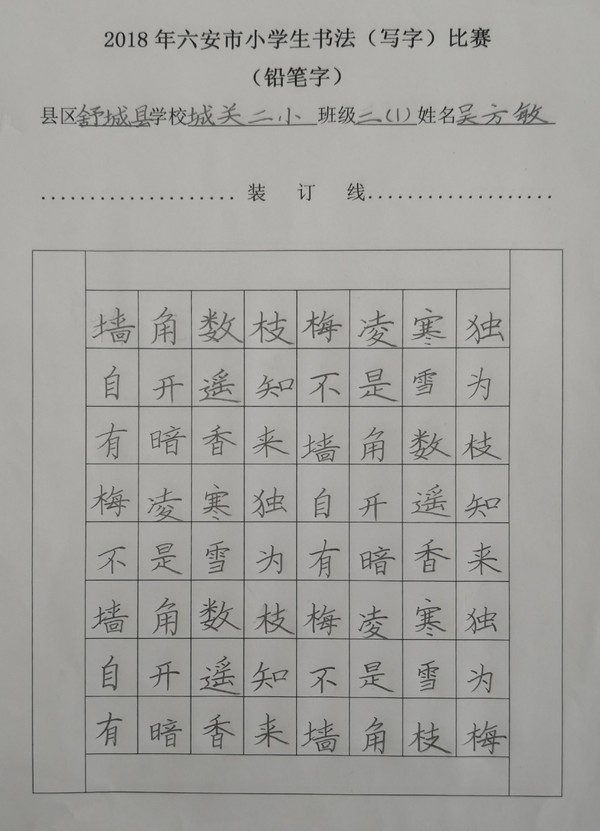 2018年六安市小学生书法（写字）比赛
（铅笔字）
县区舒城县学校城关二小 班级二(1)姓名吴方敏
....................装 订 线...................
墙角数枝梅凌寒独
自开遥知不是雪为
有暗香来墙角数枝
梅凌寒独自开遥知
不是雪为有暗香来
墙角数枝梅凌寒独
自开遥知不是雪为
有暗香来墙角枝梅